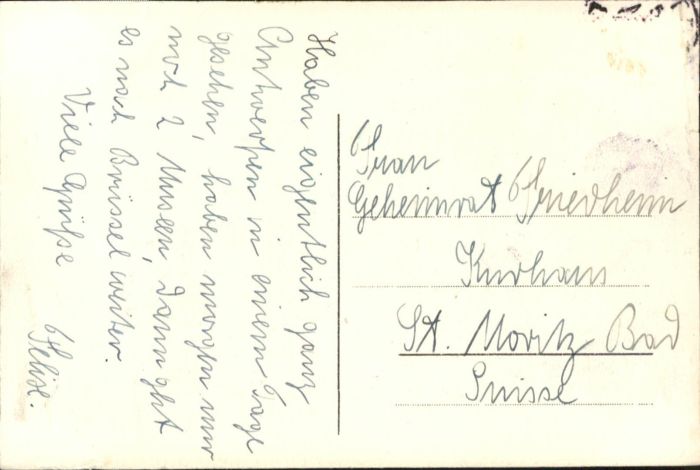 Haben eigentlich ganz
Antwerpen in einem Tage
gesehen, haben morgen nur
noch 2 Museen, dann geht
es nach Brüssel weiter.
Viele Grüße
Felix.
Frau
Geheimrat Friedheim
Kurhaus
St. Moritz Bad
Suisse